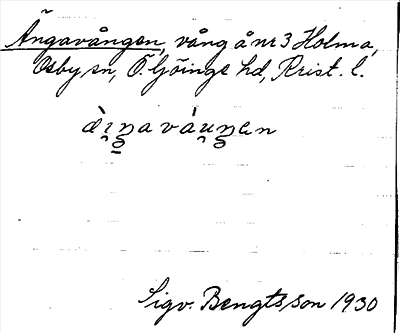 Ängavången, vång å nr 3 Holma,
Osby sn, Ö. Göinge hd, Krist. l.
Sigv. Bengtsson 1930